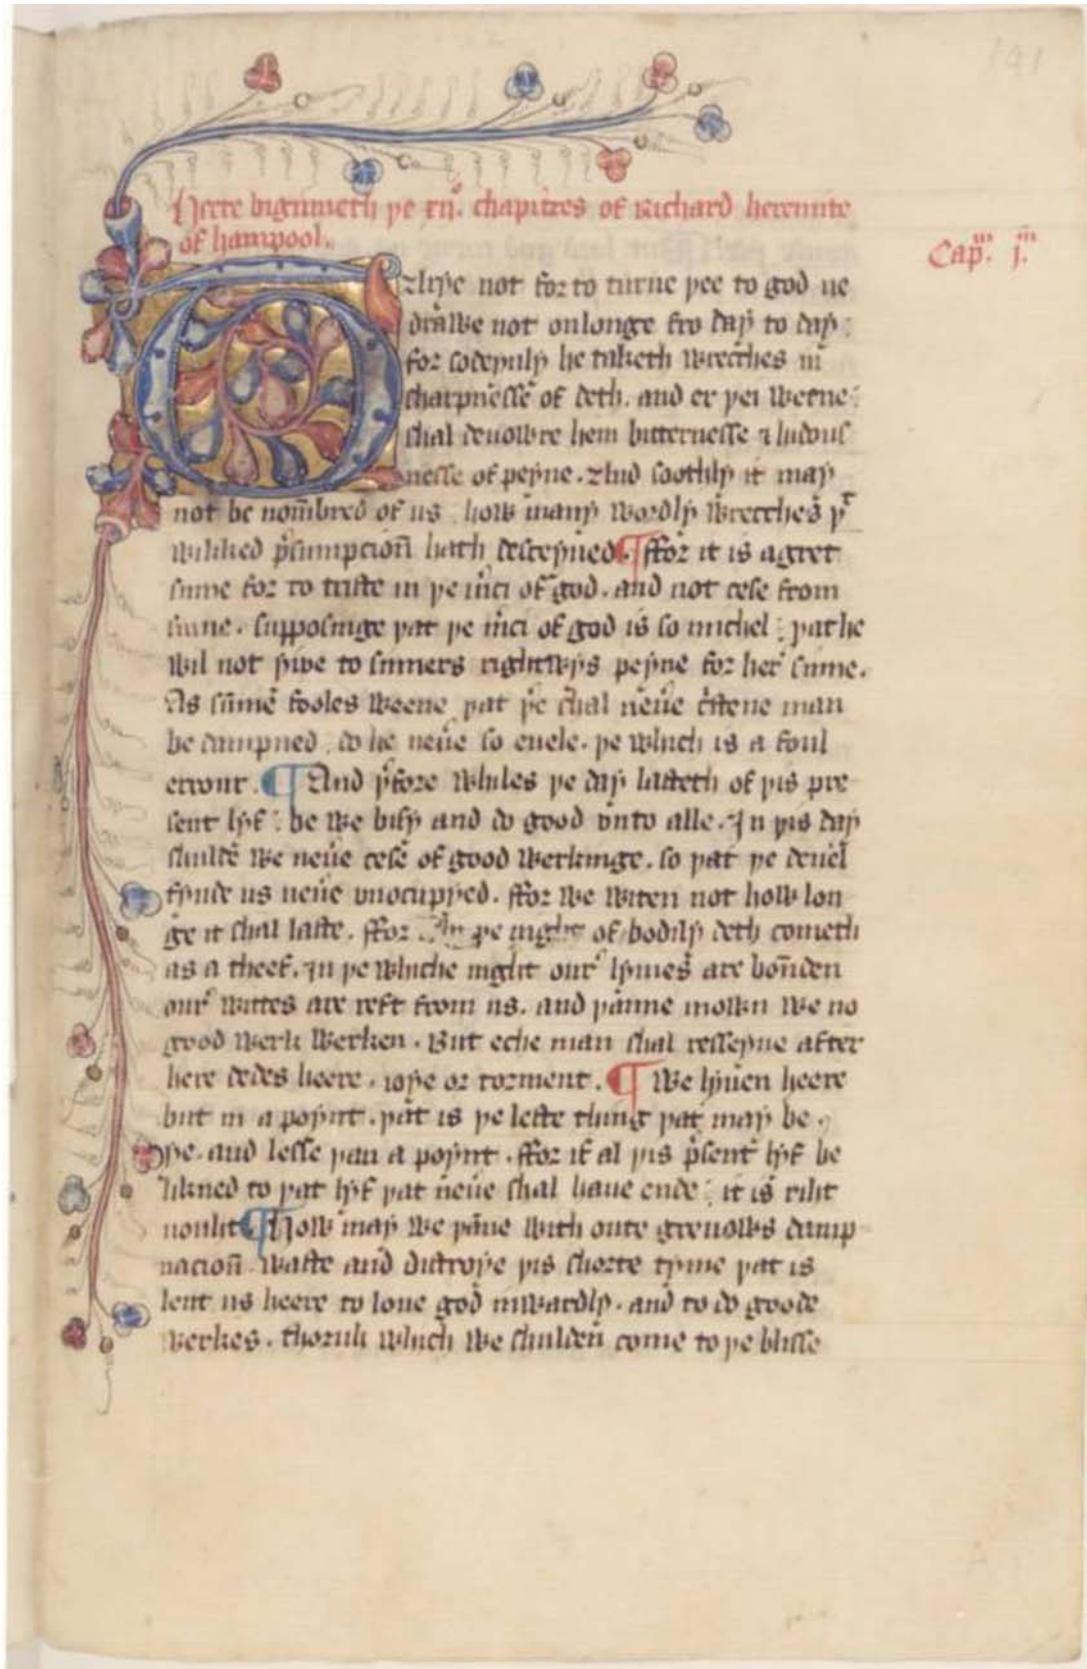 141
Heere biginneth þe xij. chapitres of Richard heremite
of hampool.
Cap̄m. j.m
TArÿe not for to turne þee to god ne
drawe not on longe fro daÿ to daÿ:
for sodeynlÿ he taketh wrecches in
scharpnesse of deth. and er þei weene:
shal deuowre hem bitternesse ⁊ hidous
nesse of peÿne. And soothlÿ it maÿ
not be nom̄bred of us how manÿ wordlÿ wrecches þt
wikked p̄sumpcioñ hath desceÿued. ¶ ffor it is a gret
sinne for to triste in þe m̄ci of god. and not cese from
sinne. supposinge þat þe m̄ci of god is so michel: þat he
wil not ȝiue to sinners rightwÿs peÿne for her sinne.
As sūme fooles weene þat þe shal neūe c̄stene man
be dampned do he neūe so euele. þe which is a foul
errour. ¶ And þ̄fore whiles þe daÿ lasteth of þis pre
sent lÿf: be we bisÿ and do good vnto alle. In þis daÿ
shuldē we neūe cese of good werkinge. so þat þe deuel
fÿnde us neūe vnocupÿed. ffor we witen not how lon
ge it shal laste. ffor In þe night of bodilÿ deth cometh
as a theef. In þe whiche night our lÿmes are boñden
our wittes are reft from us. and þanne mown we no
good werk werken. But eche man shal resseÿue after
here dedes heere. ioÿe or torment. ¶ We lÿuen heere
but in a poÿnt. þat is þe leste thing þat maÿ be.
ȝe. and lesse þan a poÿnt. ffor if al þis p̄sent lÿf be
likned to þat lÿf þat neūe shal haue ende: it is riht
nouht ¶ How maÿ we þāne with oute greuows damp
nacioñ waste and distroÿe þis shorte tÿme þat is
lent us heere to loue god inwardlÿ. and to do goode
werkes. thoruh which we shulden come to þe blisse